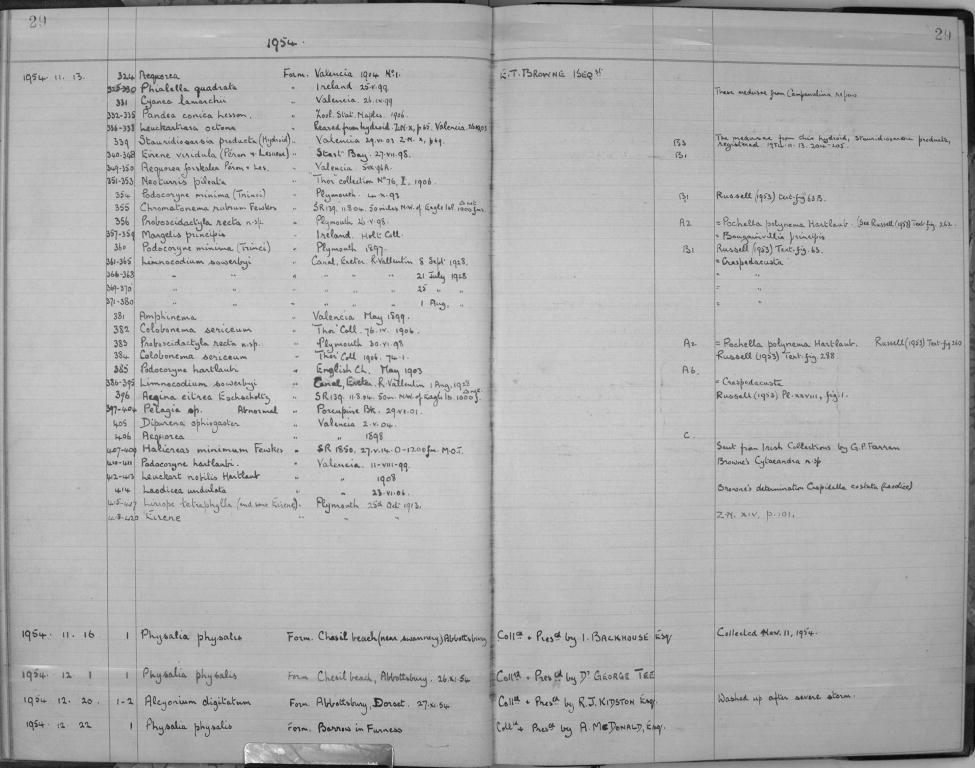 29 29
1954.
1954. 11. 13. 324 Aequorea Form. Valencia 1904 No 1. E.T. BROWNE BEQst
325-330 Phialella quadrata " Ireland 25.v.99. These medusae from Campanulina repens
331 Cyanea lamarckii " Valencia. 26.iv.99
332-335 Pandea conica Lesson. " Zool. Stat. Naples. 1906.
336-338 Leuckartiara octona " Reared from hydroid. Z.N.X, p65. Valencia.
339 Stauridiosarsia producta (Hydroid) " Valencia 29.vi.03 Z.N. X, p69. B3 The medusae from this hydroid, Stauridiosarsia producta, registered 1954.11.13. 204-205.
340-348 Eirene viridula (Péron & Lesueur) " Start Bay. 27.vii.98. B1
349-350 Aequorea forskalea Péron & Les. " Valencia.
351-353 Neoturris pileata " "Thor" collection No 76, II, 1906.
354 Podocoryne minima (Trinci) " Plymouth. 4.x.93 B1 Russell (1953) text-fig 63B.
355 Chromatonema rubrum Fewkes " SR 139. 11.8.04. 50 miles N.W. of Eagle Isl. 1000 fms.
356 Proboscidactyla recta n.sp. " Plymouth 26.v.98. A2 = Pochella polynema Hartlaub. (See Russell (1953) Text-fig. 262.
357-359 Margelis principis " Ireland. Holt Coll. = Bougainvillia principis
360 Podocoryne minima (Trinci) " Plymouth 1897. B1 Russell (1953) Text-fig. 63.
361-365 Limnocodium sowerbyi " Canal, Exeter. R. Vallentin 8 Sept 1928. = Craspedacusta
366-368 " " " " " " 21 July 1928 " "
369-370 " " " " " " 25 " " " "
371-380 " " " " " " 1 Aug. " " "
381 Amphinema " Valencia May 1899.
382 Colobonema sericeum " "Thor" Coll. 76.iv. 1906.
383 Proboscidactyla recta n.sp. " Plymouth 30.vi.98 A2 = Pochella polynema Hartlaub. Russell (1953) Text-fig 260
384 Colobonema sericeum " "Thor" Coll 1906. 74.1. Russell (1953) Text-fig 288.
385 Podocoryne hartlaubi " English Ch. May 1903 A6.
386-395 Limnocodium sowerbyi " Canal, Exeter. R. Vallentin 1 Aug, 1928 = Craspedacusta
396 Aegina citrea Eschscholtz " SR 139. 11.8.04. 50m. N.W. of Eagle Is. 1000 f. Russell (1953) Pl. xxviii, fig. 1.
397-404 Pelagia sp. Abnormal " Porcupine Bk. 29.vi.01.
405 Dipurena ophiogaster " Valencia 2.v.04.
406 Aequorea " " 1898 C.
407-409 Halicreas minimum Fewkes " SR 1850. 27.v.14. 0-1200 fm. M.O.T. Sent from Irish Collections by G.P. Farran
410-411 Podocoryne hartlaubi. " Valencia. 11-viii-99. Browne's Cytaeandra n.sp
412-413 Leuckart nobilis Hartlaub " " 1908
414 Laodicea undulata " " 23.vi.06. Browne's determination Cuspidella costata (Laodice)
415-417 Liriope tetraphylla (and some Eirene). " Plymouth 25th Oct 1913.
418-420 Eirene " " " Z.N. XIV, p. 101.
1954. 11. 16 1 Physalia physalis Form. Chesil beach (near swannery) Abbottsbury Colltd + Presd by I. BACKHOUSE Esq Collected Nov. 11, 1954.
1954. 12. 1 1 Physalia physalis Form Chesil beach, Abbotsbury. 26.xi.54 Colltd + Presd by Dr. GEORGE TEE
1954. 12. 20. 1-2 Alcyonium digitatum Form. Abbotsbury, Dorset. 27.xi.54 Colltd + Presd by R.J. KIDSTON Esq. Washed up after severe storm.
1954. 12. 22 1 Physalia physalis Form. Barrow in Furness Colltd + Presd by A. McDONALD, Esq.